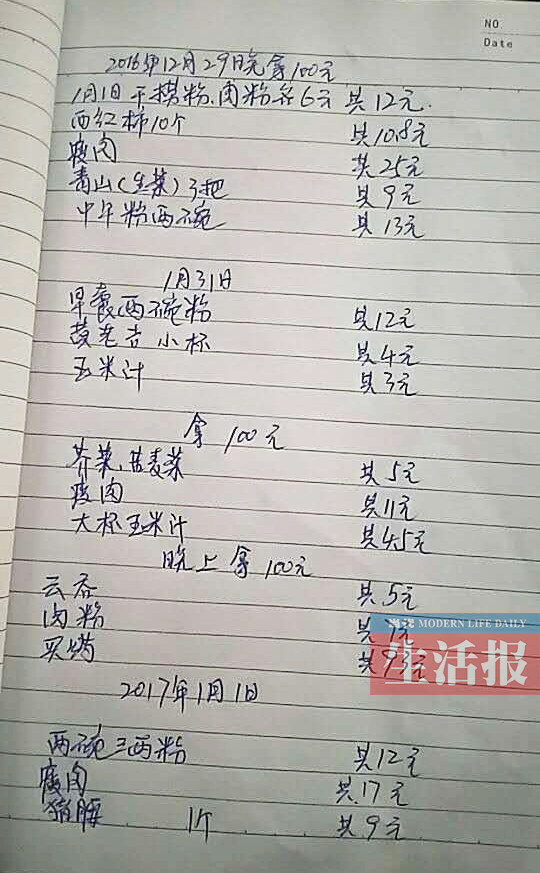 NO
Date
2016年12月29日晚拿100元
1月1日干捞粉、肉粉各6元 共12元.
西红柿10个 共10.8元
瘦肉 共25元
青山(生菜)3把 共9元
中午粉两碗 共13元
1月31日
早餐两碗粉 共12元
黄老吉小杯 共4元
玉米汁 共3元
拿100元
芥菜、荬菜 共5元
瘦肉 共11元
大杯玉米汁 共4.5元
晚上拿100元
云吞 共5元
肉粉 共 元
买 共93元
MODERN LIFE DAILY
生活报
2017年1月1日
两碗三两粉 共12元
瘦肉 共17元
猪腰 1个 共9元